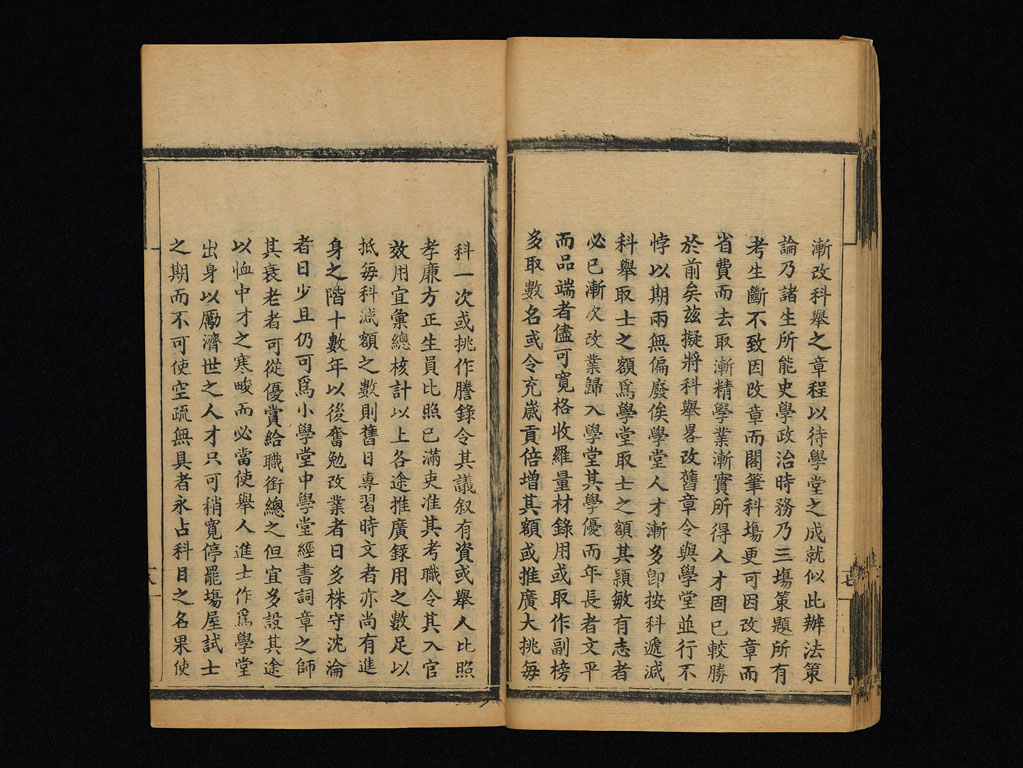 漸改科舉之章程以待學堂之成就似此辦法策
論乃諸生所能史學政治時務乃三塲策題所有
考生斷不致因改章而閣筆科塲更可因改章而
省費而去取漸精學業漸實所得人才固已較勝
於前矣兹擬將科舉畧改舊章令與學堂並行不
悖以期兩無偏廢俟學堂人才漸多卽按科遞減
科舉取士之額爲學堂取士之額其頴敏有志者
必已漸次改業歸入學堂其學優而年長者文平
而品端者儘可寛格收羅量材錄用或取作副榜
多取數名或令充歲貢倍增其額或推廣大挑每
科一次或挑作謄錄令其議叙有資或舉人比照
孝廉方正生員比照已滿吏准其考職令其入官
效用宜彙總核計以上各途推廣録用之數足以
抵每科減額之數則舊日專習時文者亦尚有進
身之階十數年以後奮勉改業者日多株守沈淪
者日少且仍可爲小學堂中學堂經書詞章之師
其衰老者可從優賞給職銜總之但宜多設其途
以恤中才之寒畯而必當使舉人進士作爲學堂
出身以勵濟世之人才只可稍寛停罷塲屋試士
之期而不可使空疏無具者永占科目之名果使